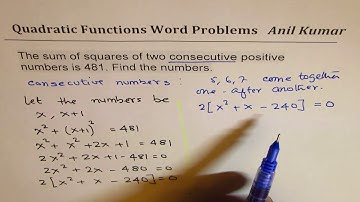 Quadratic Functions Word Problems Anil Kumar
The sum of squares of two consecutive positive
numbers is 481. Find the numbers.
consecutive numbers : 5, 6, 7 come together
one after another.
Let the numbers be
x, x+1
x² + (x+1)² = 481
x² + x² + 2x + 1 = 481
2x² + 2x + 1 - 481 = 0
2x² + 2x - 480 = 0
2[x² + x - 240] = 0
2[x² + x - 240] = 0